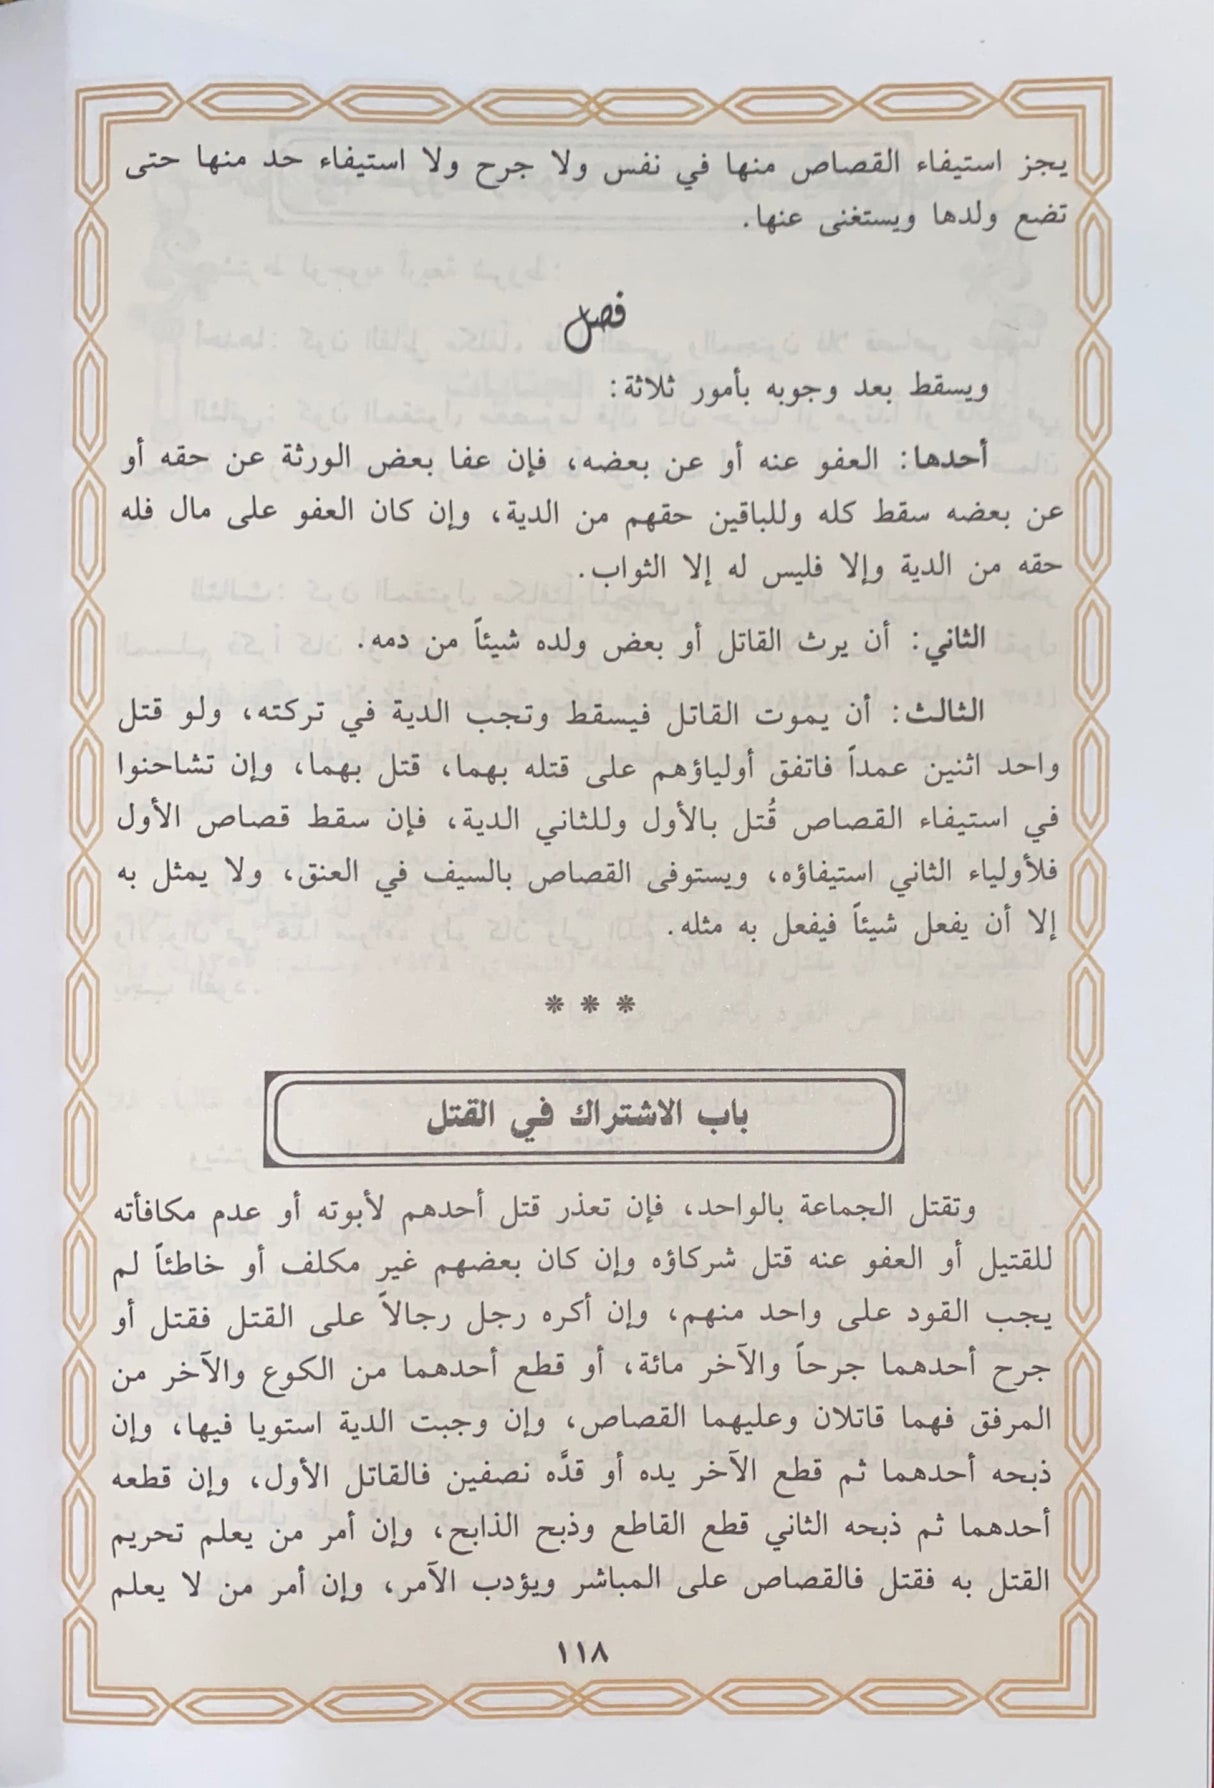 يجز استيفاء القصاص منها في نفس ولا جرح ولا استيفاء حد منها حتى
تضع ولدها ويستغنى عنها.
فصل
ويسقط بعد وجوبه بأمور ثلاثة:
أحدها: العفو عنه أو عن بعضه، فإن عفا بعض الورثة عن حقه أو
عن بعضه سقط كله وللباقين حقهم من الدية، وإن كان العفو على مال فله
حقه من الدية وإلا فليس له إلا الثواب.
الثاني: أن يرث القاتل أو بعض ولده شيئاً من دمه.
الثالث: أن يموت القاتل فيسقط وتجب الدية في تركته، ولو قتل
واحد اثنين عمداً فاتفق أولياؤهم على قتله بهما، قتل بهما، وإن تشاحنوا
في استيفاء القصاص قُتل بالأول وللثاني الدية، فإن سقط قصاص الأول
فلأولياء الثاني استيفاؤه، ويستوفى القصاص بالسيف في العنق، ولا يمثل به
إلا أن يفعل شيئاً فيفعل به مثله.
* * *
باب الاشتراك في القتل
وتقتل الجماعة بالواحد، فإن تعذر قتل أحدهم لأبوته أو عدم مكافأته
للقتيل أو العفو عنه قتل شركاؤه وإن كان بعضهم غير مكلف أو خاطئاً لم
يجب القود على واحد منهم، وإن أكره رجل رجالاً على القتل فقتل أو
جرح أحدهما جرحاً والآخر مائة، أو قطع أحدهما من الكوع والآخر من
المرفق فهما قاتلان وعليهما القصاص، وإن وجبت الدية استويا فيها، وإن
ذبحه أحدهما ثم قطع الآخر يده أو قدَّه نصفين فالقاتل الأول، وإن قطعه
أحدهما ثم ذبحه الثاني قطع القاطع وذبح الذابح، وإن أمر من يعلم تحريم
القتل به فقتل فالقصاص على المباشر ويؤدب الآمر، وإن أمر من لا يعلم
١١٨